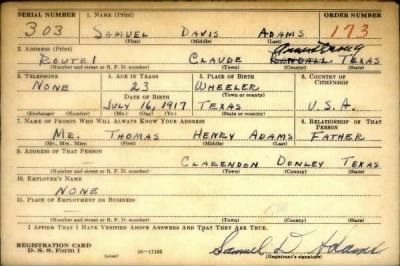 SERIAL NUMBER 1. NAME (Print) ORDER NUMBER
303 SAMUEL DAVIS ADAMS 173
(First) (Middle) (Last)
2. ADDRESS (Print) Armstrong
ROUTE 1 CLAUDE RANDALL TEXAS
(Number and street or R. F. D. number) (Town) (County) (State)
3. TELEPHONE 4. AGE IN YEARS 5. PLACE OF BIRTH 6. COUNTRY OF CITIZENSHIP
NONE 23 WHEELER
DATE OF BIRTH (Town or county)
JULY 16, 1917 TEXAS U.S.A.
(Exchange) (Number) (Mo.) (Day) (Yr.) (State or country)
7. NAME OF PERSON WHO WILL ALWAYS KNOW YOUR ADDRESS 8. RELATIONSHIP OF THAT PERSON
MR. THOMAS HENRY ADAMS FATHER
(Mr., Mrs., Miss) (First) (Middle) (Last)
9. ADDRESS OF THAT PERSON
CLARENDON DONLEY TEXAS
(Number and street or R. F. D. number) (Town) (County) (State)
10. EMPLOYER'S NAME
NONE
11. PLACE OF EMPLOYMENT OR BUSINESS
(Number and street or R. F. D. number) (Town) (County) (State)
I AFFIRM THAT I HAVE VERIFIED ABOVE ANSWERS AND THAT THEY ARE TRUE.
REGISTRATION CARD Samuel D. Adams
D. S. S. Form 1 (over) (Registrant's signature)